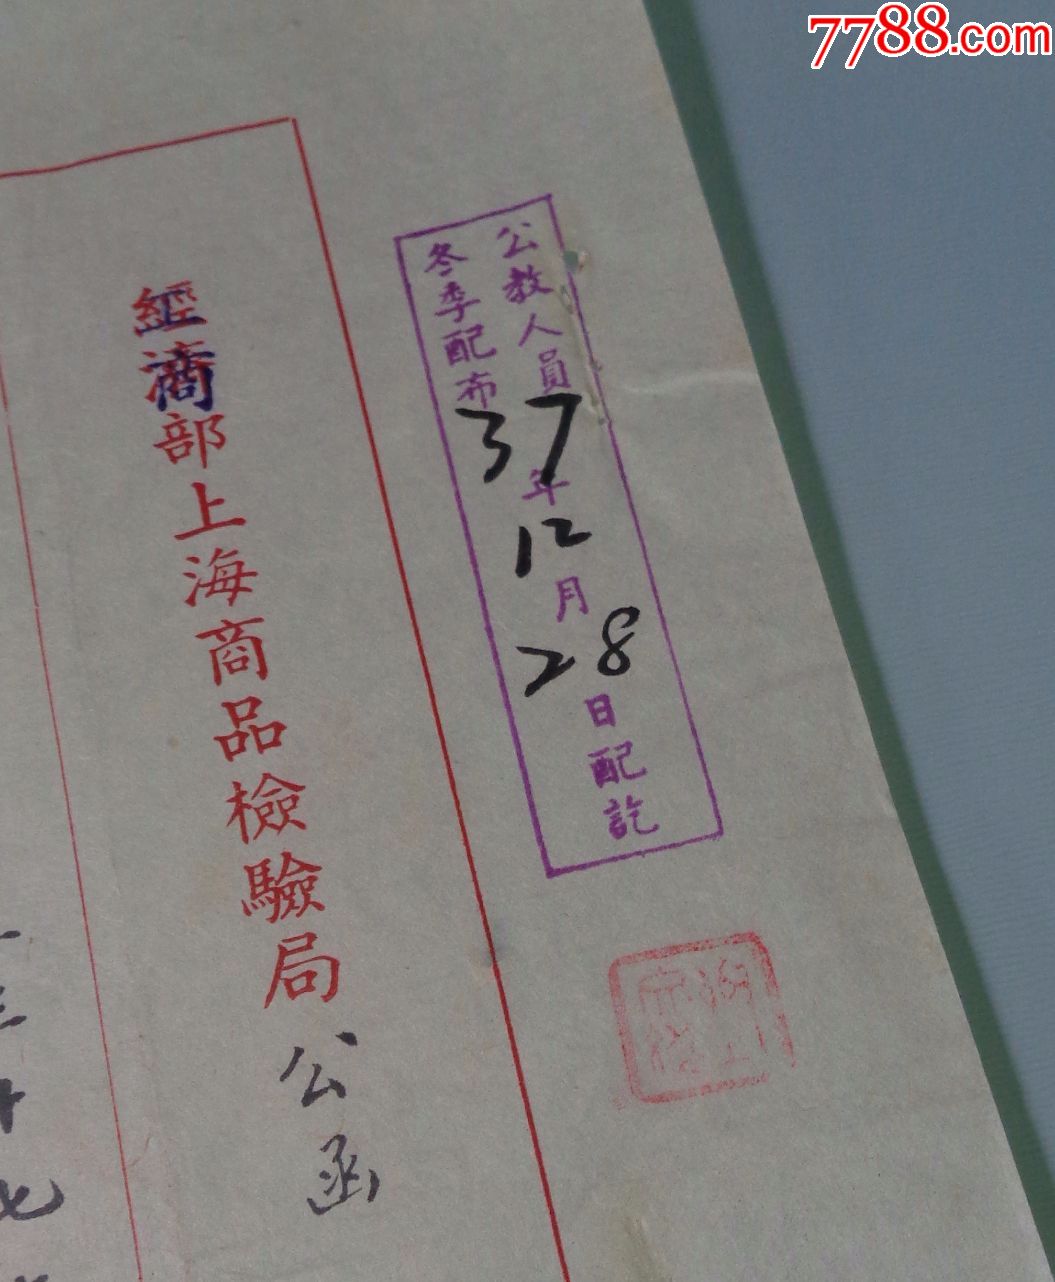 7788.com
公教人員
冬季配布
37年12月28日配訖
經濟部上海商品檢驗局公函
工商